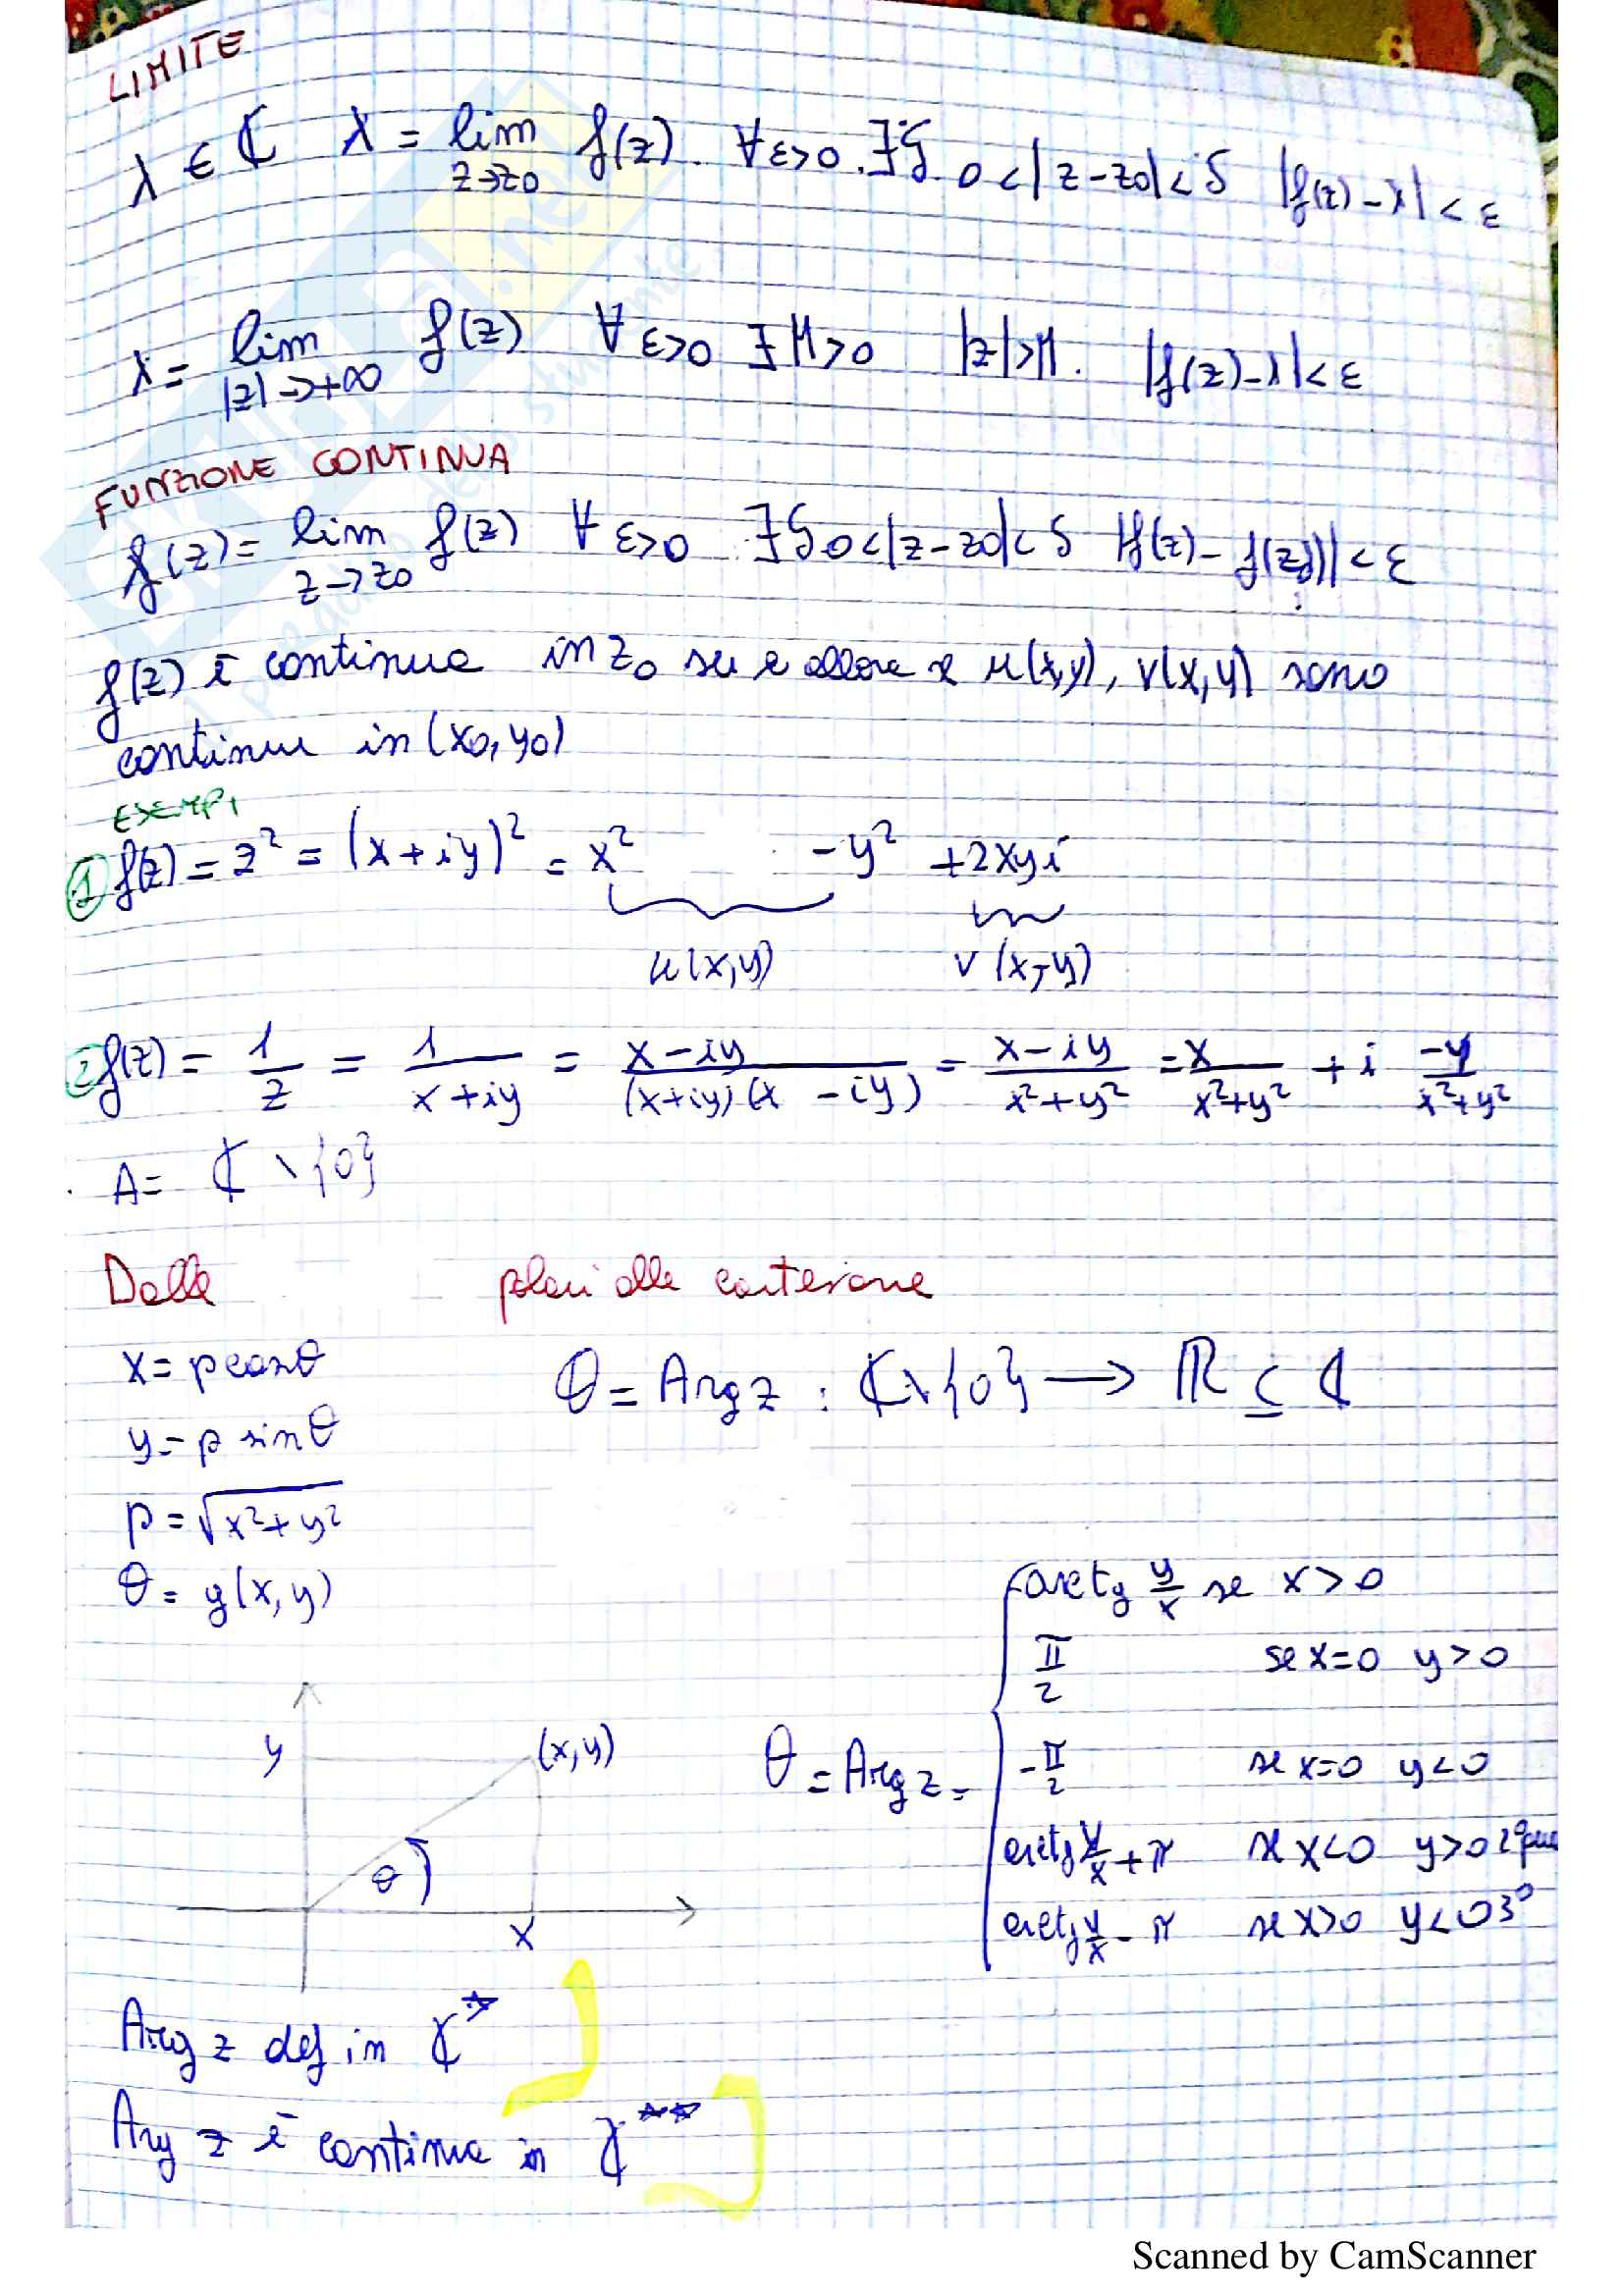 LIMITE
λ ∈ ℂ λ = lim z→z0 f(z). ∀ε>0 . ∃δ 0<|z-z0|<δ |f(z)-λ|<ε
λ = lim |z|→+∞ f(z) ∀ε>0 ∃M>0 |z|>M. |f(z)-λ|<ε
FUNZIONE CONTINUA
f(z) = lim z→z0 f(z) ∀ε>0 ∃δ 0<|z-z0|<δ |f(z)-f(z0)|<ε
f(z) è continua in z0 se e allora x u(x,y), v(x,y) sono
continue in (x0,y0)
ESEMPI
① f(z) = z² = (x+iy)² = x² -y² +2xyi
u(x,y) v(x,y)
② f(z) = 1/z = 1/(x+iy) = (x-iy)/((x+iy)(x-iy)) = (x-iy)/(x²+y²) = x/(x²+y²) + i -y/(x²+y²)
A= ℂ \ {0}
Dalle polari alle cartesiane
x= ρcosθ
θ = Arg z : ℂ\{0} → ℝ ⊆ ℂ
y= ρ sinθ
ρ = √x²+y²
θ= g(x,y)
θ = Arg z =
arctg y/x se x>0
π/2 se x=0 y>0
-π/2 se x=0 y<0
arctg y/x + π se x<0 y>0 2°
arctg y/x - π se x>0 y<0 3°
y (x,y)
θ
x
Arg z def in ℂ*
Arg z è continua in ℂ**
Scanned by CamScanner